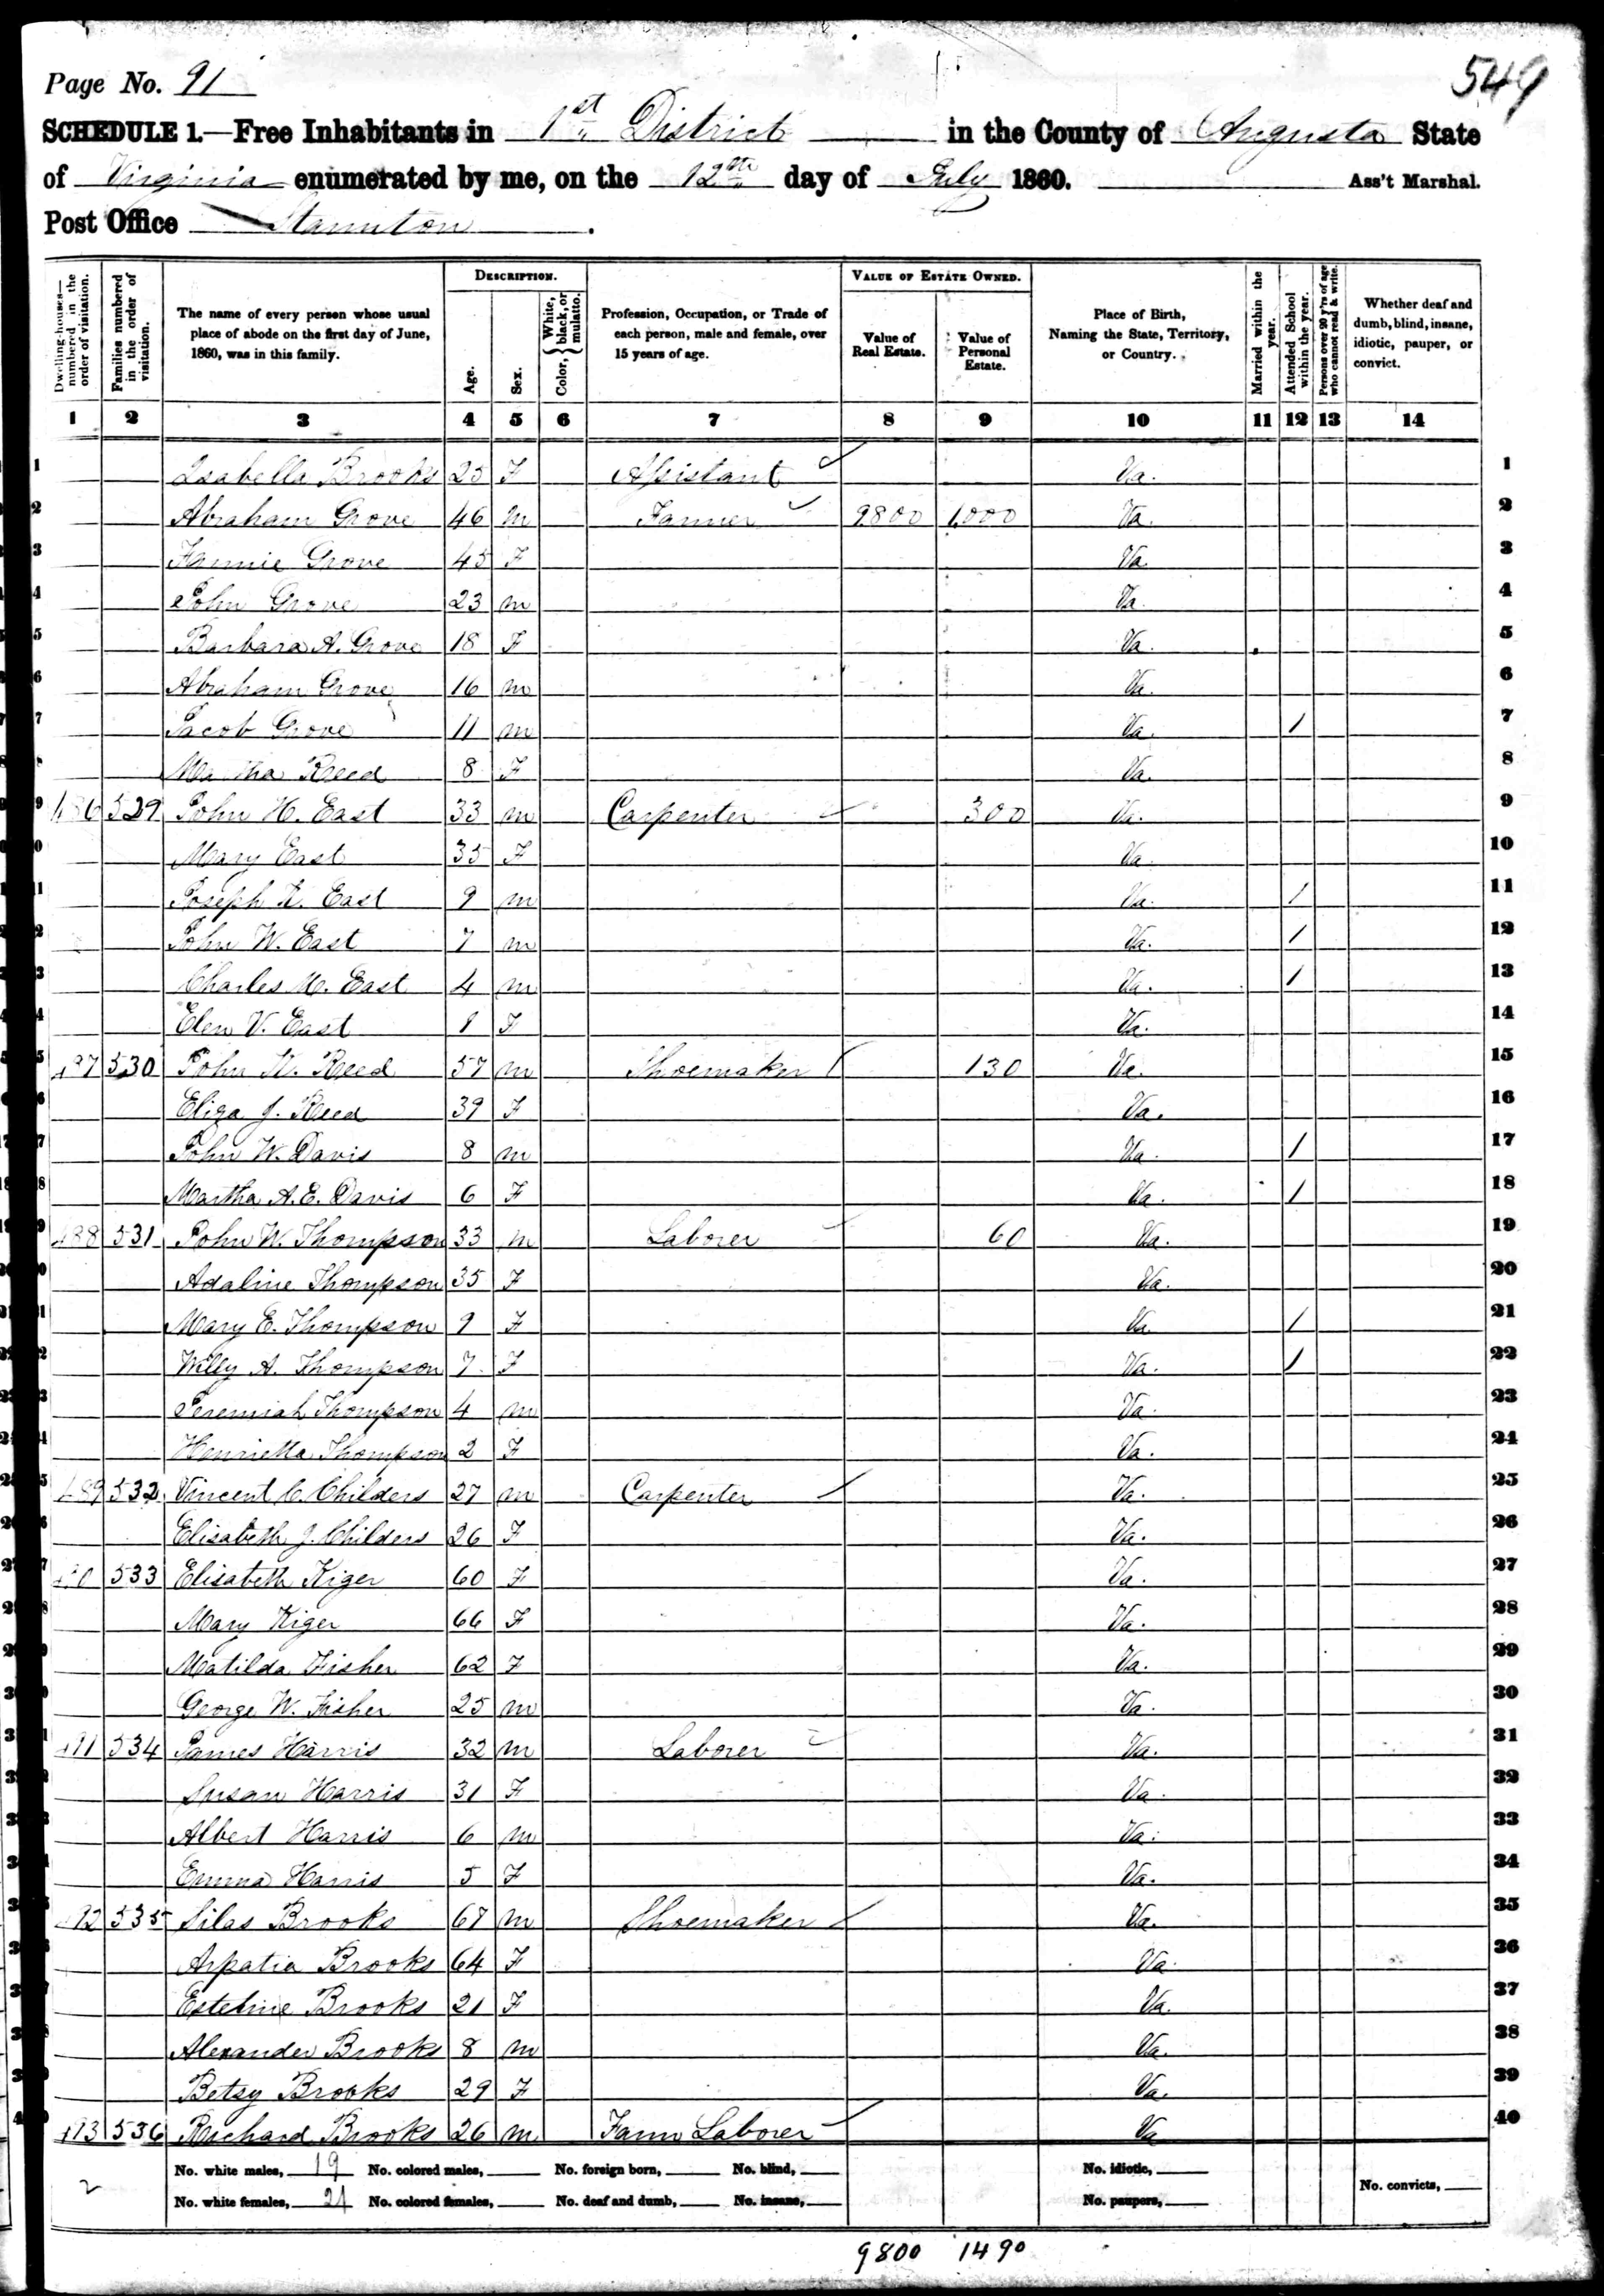 Page No. 91
549
SCHEDULE 1.—Free Inhabitants in 1st District in the County of Augusta State
of Virginia enumerated by me, on the 12th day of July 1860. Ass't Marshal.
Post Office Staunton.
Dwelling-houses—numbered in the order of visitation.
Families numbered in the order of visitation.
The name of every person whose usual place of abode on the first day of June, 1860, was in this family.
DESCRIPTION.
Age.
Sex.
Color, { White, black, or mulatto.
Profession, Occupation, or Trade of each person, male and female, over 15 years of age.
VALUE OF ESTATE OWNED.
Value of Real Estate.
Value of Personal Estate.
Place of Birth, Naming the State, Territory, or Country.
Married within the year.
Attended School within the year.
Persons over 20 y'rs of age who cannot read & write.
Whether deaf and dumb, blind, insane, idiotic, pauper, or convict.
1 2 3 4 5 6 7 8 9 10 11 12 13 14
1 Isabella Brooks 25 F Assistant Va. 1
2 Abraham Grove 46 m Farmer 9800 1,000 Va. 2
3 Fannie Grove 45 F Va. 3
4 John Grove 23 m Va. 4
5 Barbara A. Grove 18 F Va. 5
6 Abraham Grove 16 m Va. 6
7 Jacob Grove 11 m Va. / 7
Martha Reed 8 F Va. 8
9 486 529 John H. East 33 m Carpenter 300 Va. 9
Mary East 35 F Va. 10
Joseph K. East 9 m Va. / 11
John W. East 7 m Va. / 12
Charles M. East 4 m Va. / 13
Elen V. East 1 F Va. 14
487 530 John N. Reed 57 m Shoemaker 130 Va. 15
Eliza J. Reed 39 F Va. 16
John W. Davis 8 m Va. / 17
Martha A. E. Davis 6 F Va. / 18
488 531 John W. Thompson 33 m Laborer 60 Va. 19
Adaline Thompson 35 F Va. 20
Mary E. Thompson 9 F Va. / 21
Willy A. Thompson 7 F Va. / 22
Jeremiah Thompson 4 m Va. 23
Henrietta Thompson 2 F Va. 24
489 532 Vincent C. Childers 27 m Carpenter Va. 25
Elisabeth J. Childers 26 F Va. 26
490 533 Elisabeth Kiger 60 F Va. 27
Mary Kiger 66 F Va. 28
Matilda Fisher 62 F Va. 29
George W. Fisher 25 m Va. 30
491 534 James Harris 32 m Laborer Va. 31
Susan Harris 31 F Va. 32
Albert Harris 6 m Va. 33
Emma Harris 5 F Va. 34
492 535 Silas Brooks 67 m Shoemaker Va. 35
Arpatia Brooks 64 F Va. 36
Esteline Brooks 21 F Va. 37
Alexander Brooks 8 m Va. 38
Betsy Brooks 29 F Va. 39
493 536 Richard Brooks 26 m Farm Laborer Va 40
No. white males, 19 No. colored males, No. foreign born, No. blind, No. idiotic,
No. white females, 21 No. colored females, No. deaf and dumb, No. insane, No. paupers, No. convicts,
2
9800 1490